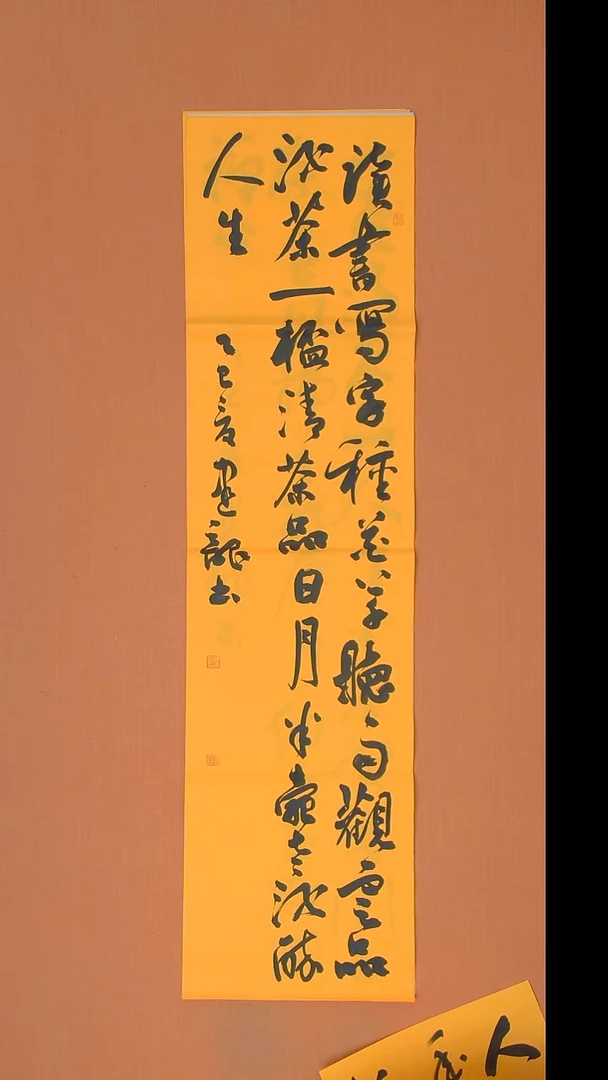 讀書寫字種花草聽雨觀雲品
酒茶一清茶品日月半壺老酒醉
人生
乙巳夏建龍書
人